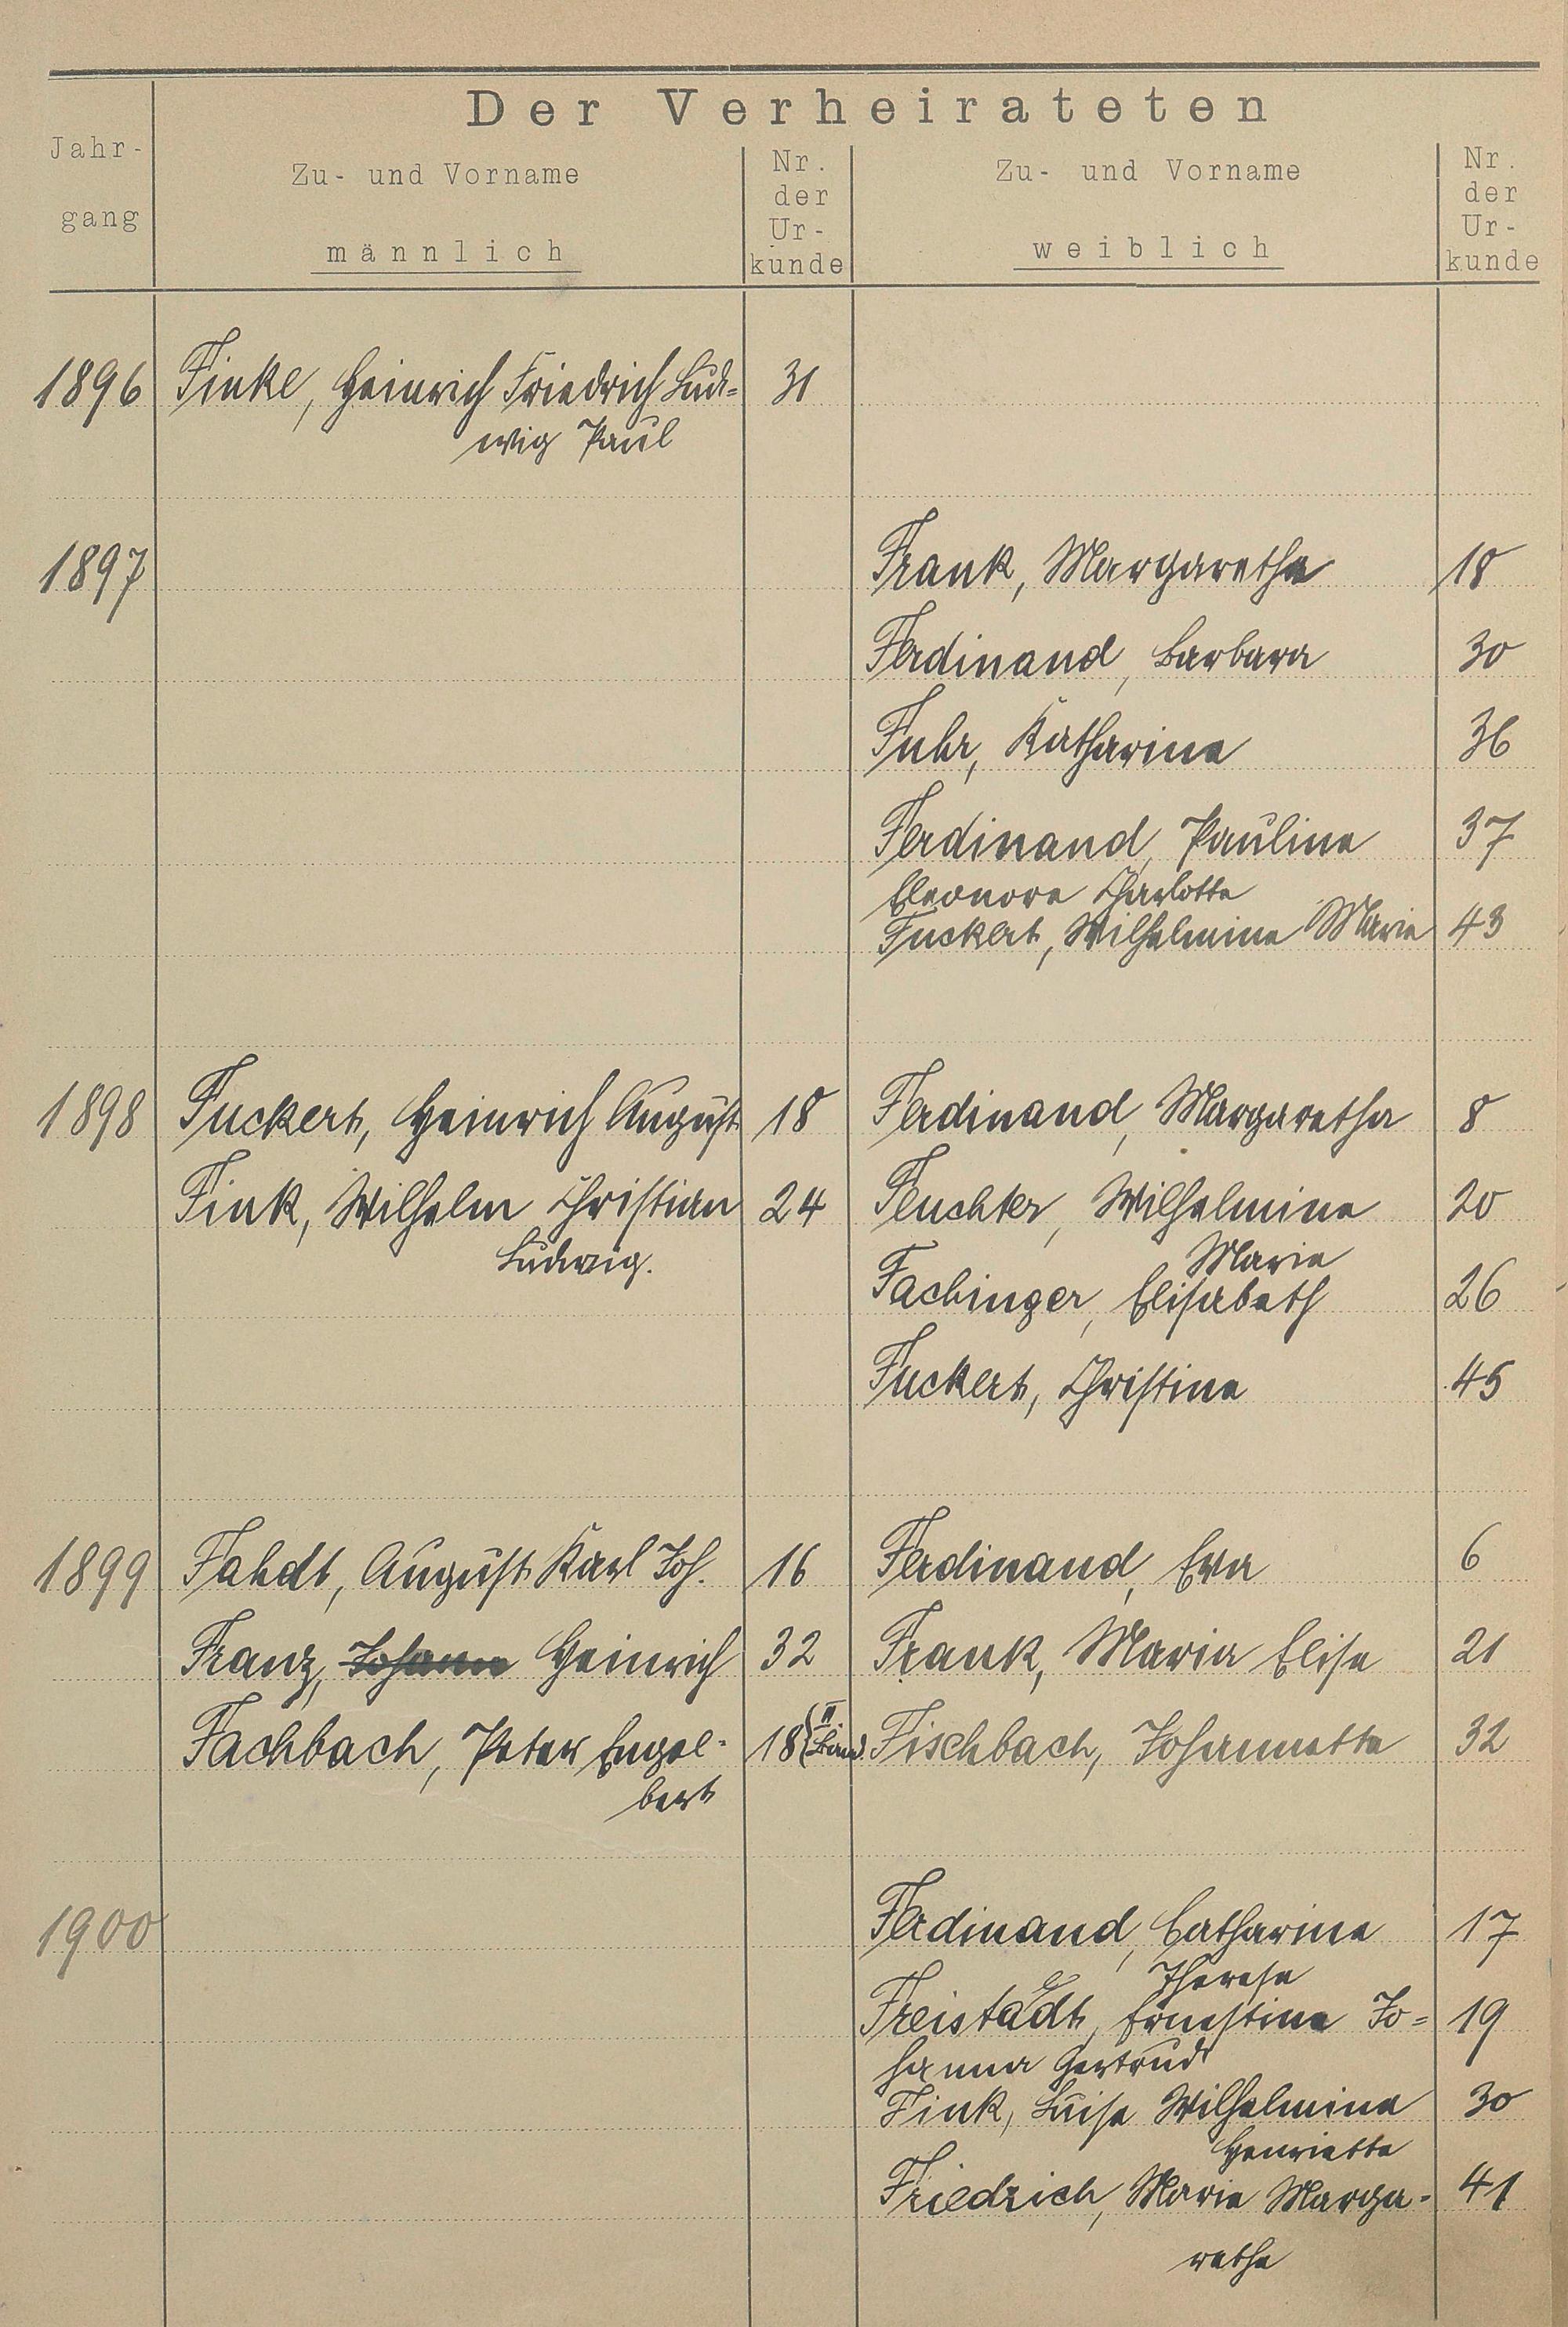 Der Verheirateten
Jahr-
gang
Zu- und Vorname
männlich
Nr.
der
Ur-
kunde
Zu- und Vorname
weiblich
Nr.
der
Ur-
kunde
1896 Finke, Heinrich Friedrich Lud= 31
wig Paul
1897 Frank, Margarethe 18
Ferdinand, Barbara 30
Fuhr, Katharine 36
Ferdinand, Pauline 37
Eleonore Charlotte
Fuckert, Wilhelmine Marie 43
1898 Fuckert, Heinrich August 18 Ferdinand, Margaretha 8
Fink, Wilhelm Christian 24 Feuchter, Wilhelmine 20
Ludwig. Marie
Fachinger, Elisabeth 26
Fuckert, Christine 45
1899 Fahdt, August Karl Joh. 16 Ferdinand, Eva 6
Franz, Johann Heinrich 32 Frank, Maria Elise 21
Fachbach, Peter Engel- 18 (II Band. Fischbach, Johannette 32
bert
1900 Ferdinand, Catharine 17
Therese
Freistadt, Ernestine Jo= 19
hanna Gertrud
Fink, Luise Wilhelmine 30
Henriette
Friedrich, Marie Marga- 41
rethe